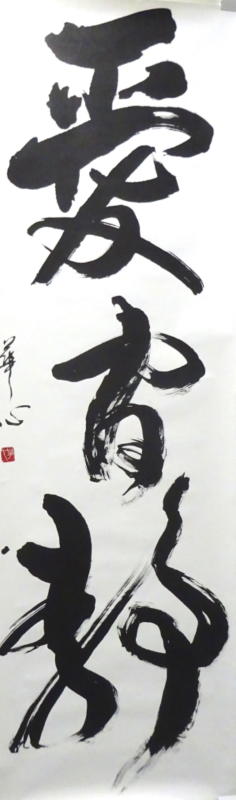 愛有静
華心